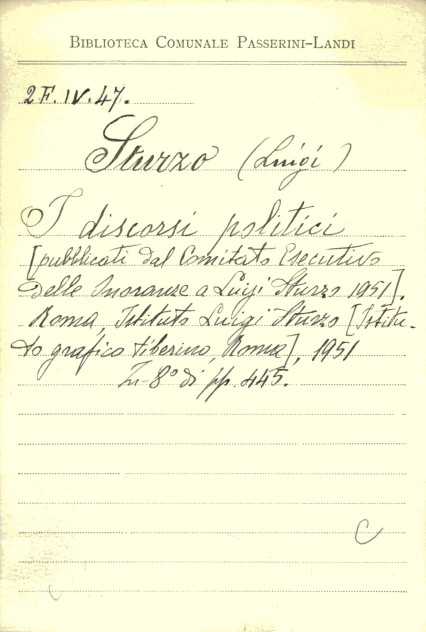 BIBLIOTECA COMUNALE PASSERINI-LANDI
2F.IV.47.
Sturzo (Luigi)
I discorsi politici
[pubblicati dal Comitato Esecutivo
delle Onoranze a Luigi Sturzo 1951].
Roma, Istituto Luigi Sturzo [Istitu-
to grafico tiberino, Roma], 1951
In-8° di pp. 445.
C